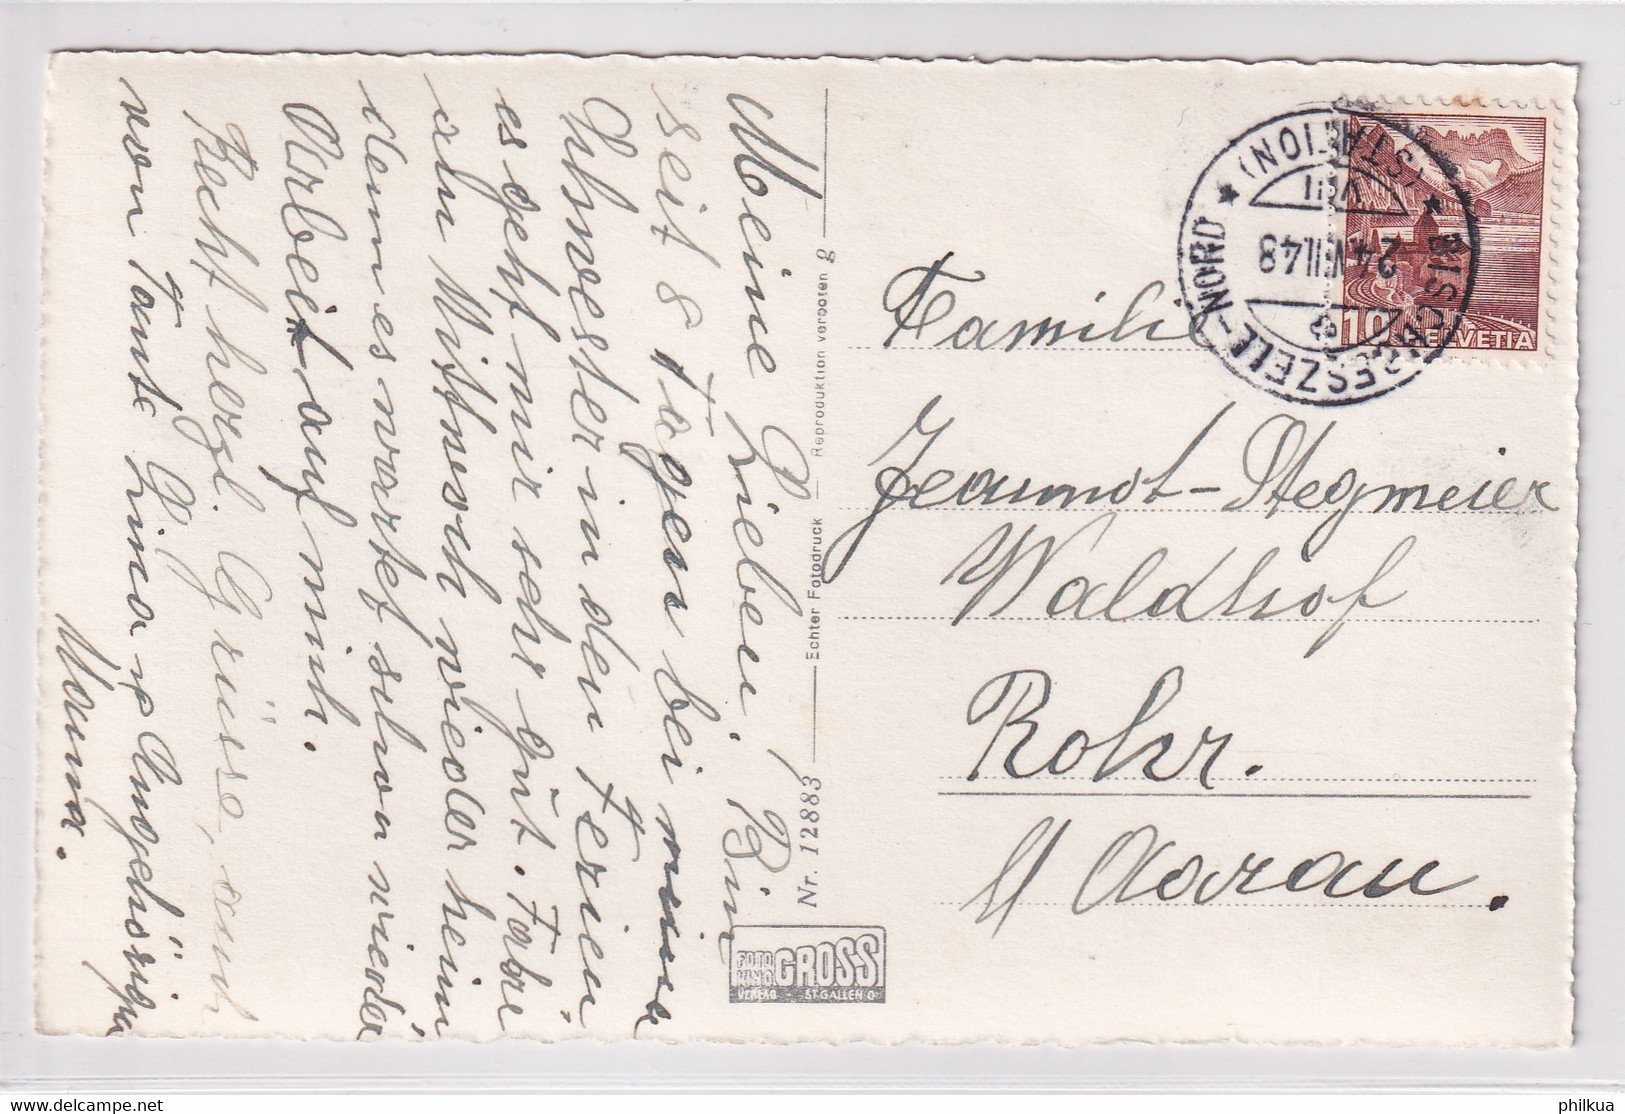 Meine Lieben. Bin
seit 8 Tagen bei meiner
Schwester in den Ferien
es geht mir sehr gut. Fahre
am Mittwoch wieder heim
denn es wartet schon wieder
Arbeit auf mich.
Recht herzl. Grüsse, auch
von Tante Lina & Angehörigen
Mama.
Nr. 12883 Echter Fotodruck Reproduktion verboten g
FOTO KINO GROSS
VERLAG ST. GALLEN O
BISCHOFSZELL-NORD
(STATION)
VIII
24.VIII.48
10 HELVETIA
Familie
Jeannot-Stegmeier
Waldhof
Rohr.
b/ Aarau.
philkua